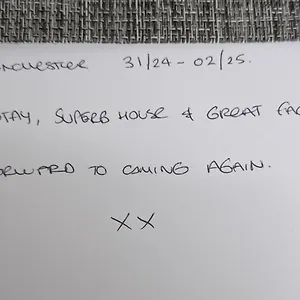 NCHESTER 31/24 - 02/25.
STAY, SUPERB HOUSE & GREAT FAC
ORWARD TO COMING AGAIN.
XX